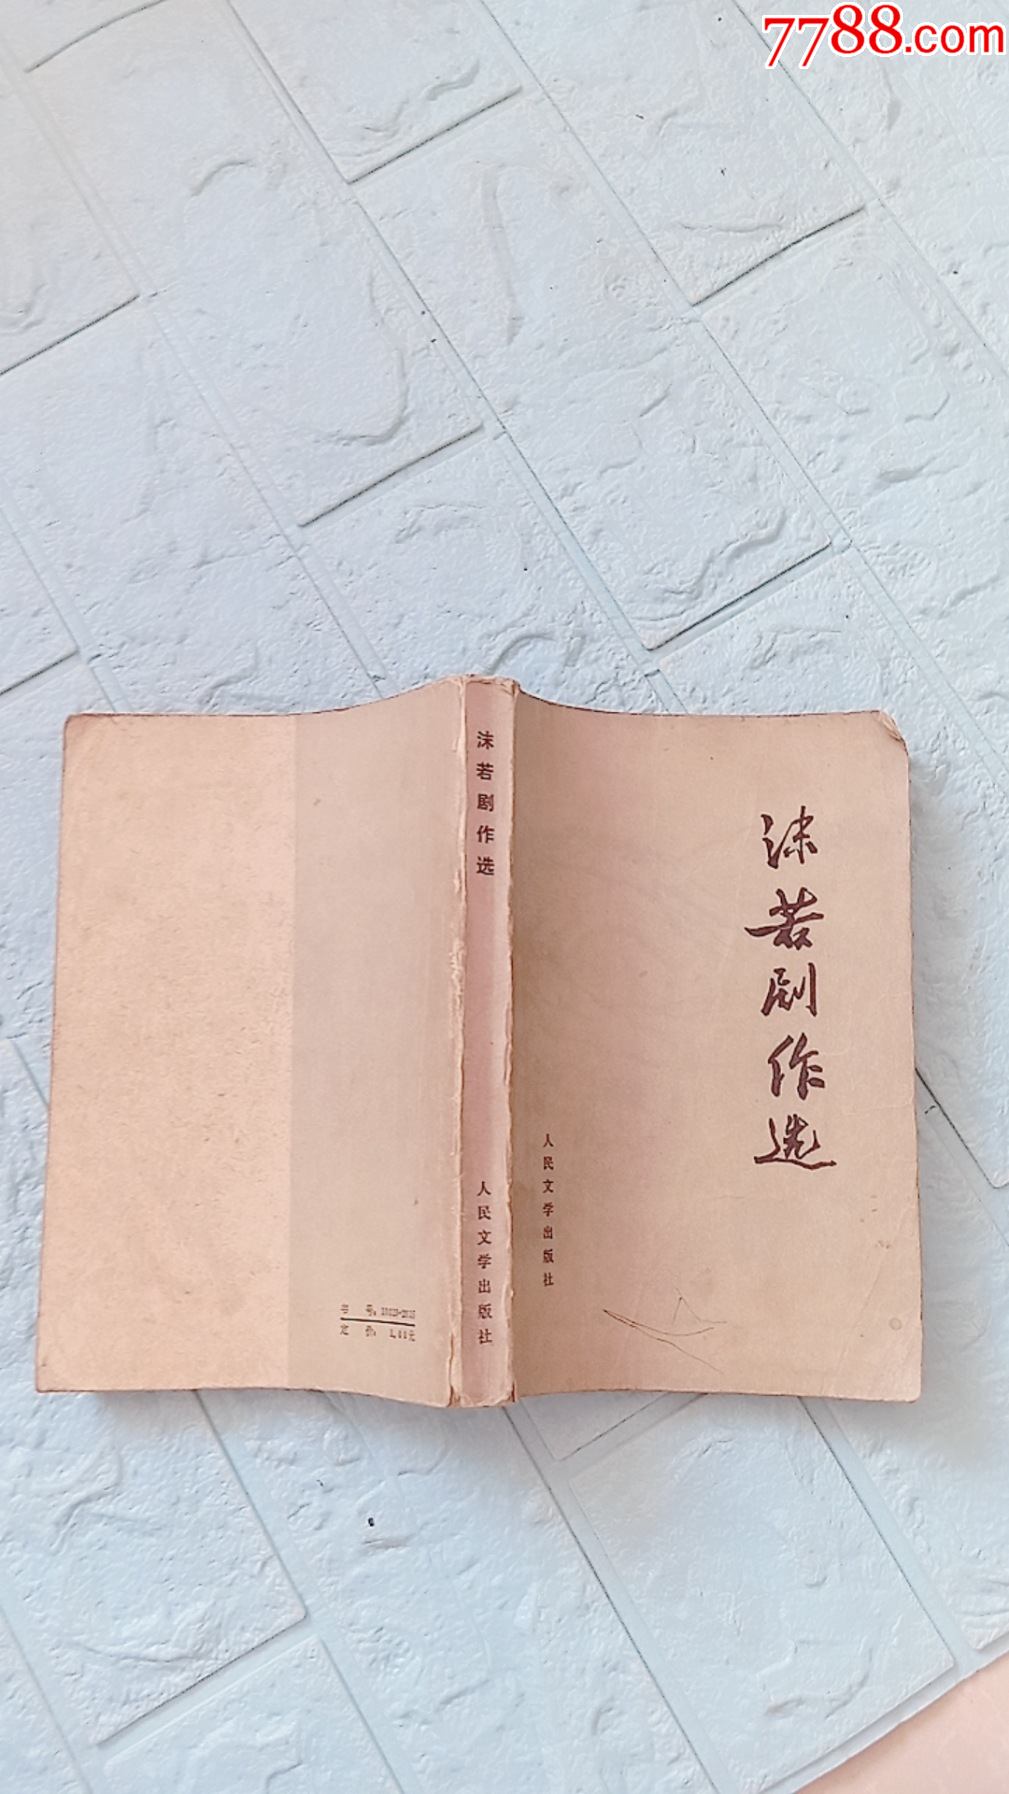 7788.com
沫若剧作选
人民文学出版社
沫若剧作选
人民文学出版社
书 号:
定 价: 1.00元